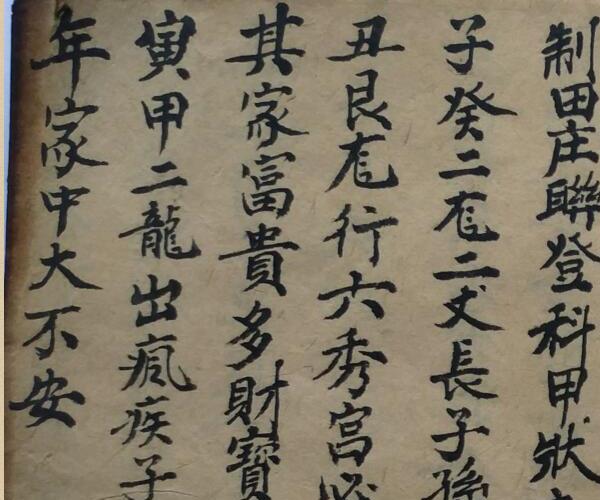 制田庄聯登科甲狀
子癸二龙二丈長子孫
丑艮龙行六秀宮必
其家富貴多財寶
寅甲二龍出瘋疾子
年家中大不安